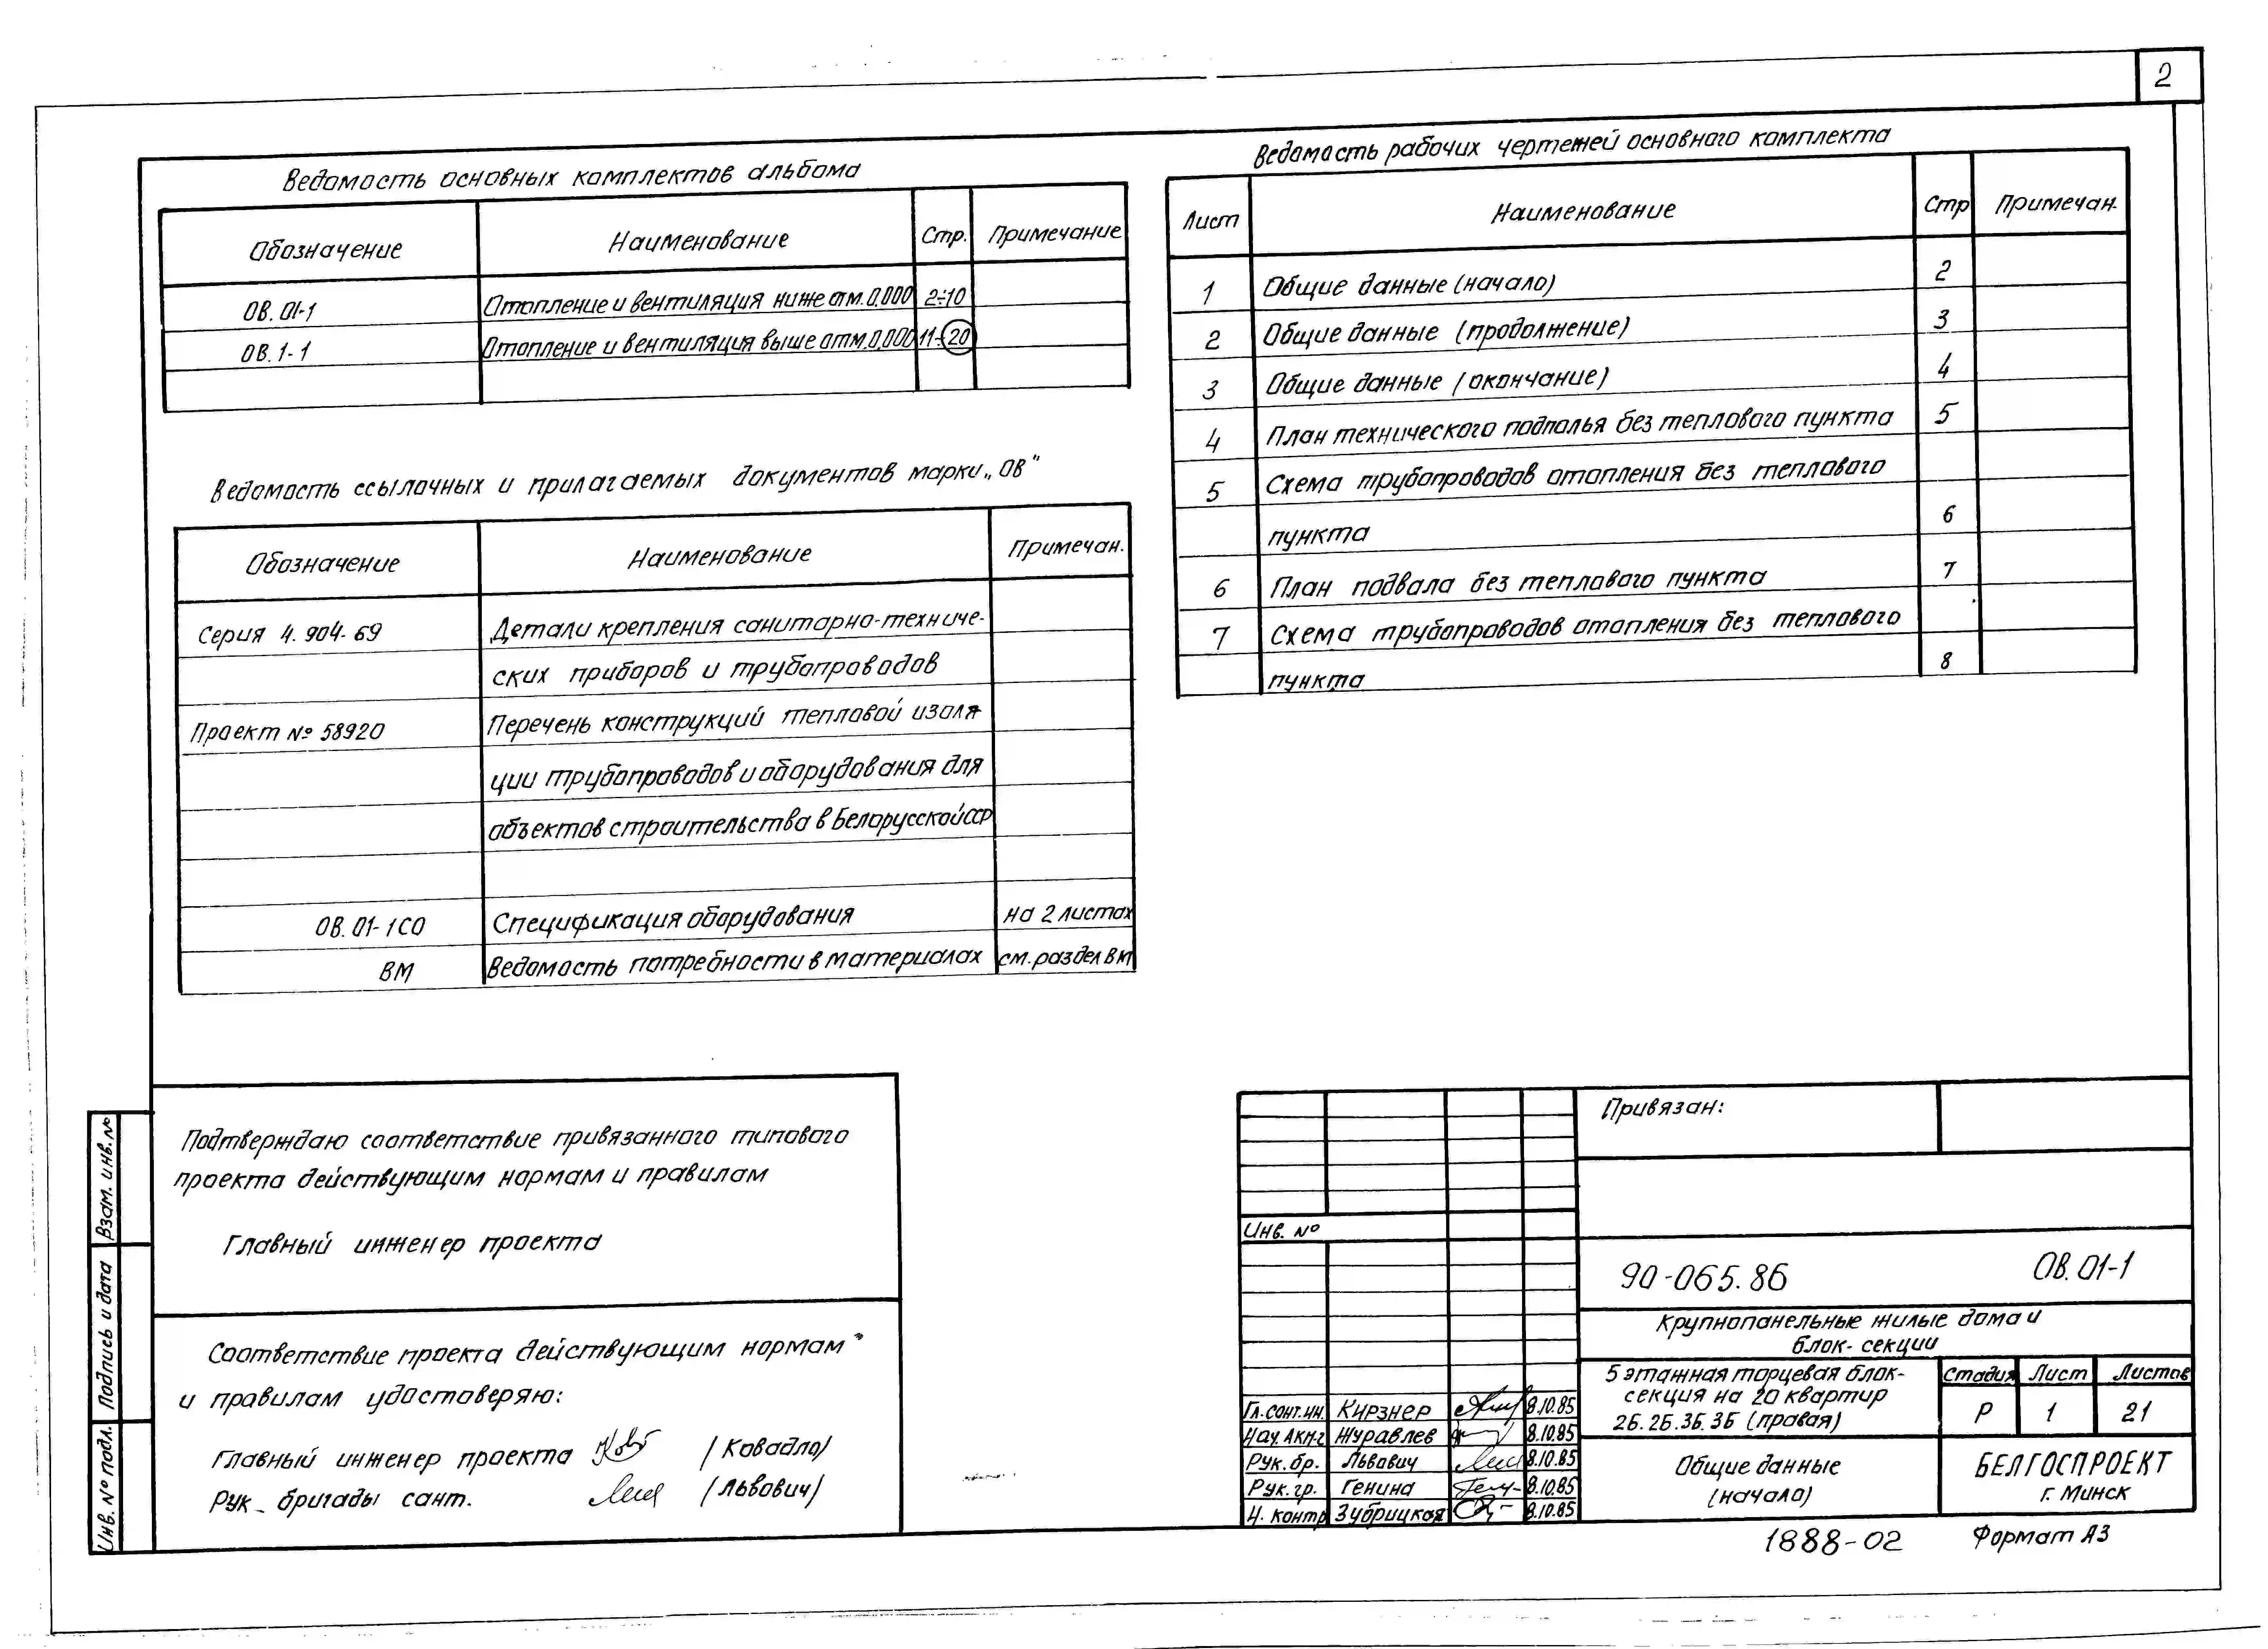 2
Ведомость основных комплектов альбома
Обозначение Наименование Стр. Примечание
ОВ.01-1 Отопление и вентиляция ниже отм.0,000 2÷10
ОВ.1-1 Отопление и вентиляция выше отм.0,000 11÷20
Ведомость ссылочных и прилагаемых документов марки „ОВ"
Обозначение Наименование Примечан.
Серия 4.904-69 Детали крепления санитарно-техниче-
ских приборов и трубопроводов
Проект № 58920 Перечень конструкций тепловой изоля-
ции трубопроводов и оборудования для
объектов строительства в Белорусской ССР
ОВ.01-1СО Спецификация оборудования на 2 листах
ВМ Ведомость потребности в материалах см. раздел ВМ
Ведомость рабочих чертежей основного комплекта
Лист Наименование Стр Примечан.
1 Общие данные (начало) 2
2 Общие данные (продолжение) 3
3 Общие данные (окончание) 4
4 План технического подполья без теплового пункта 5
5 Схема трубопроводов отопления без теплового
пункта 6
6 План подвала без теплового пункта 7
7 Схема трубопроводов отопления без теплового
пункта 8
Подтверждаю соответствие привязанного типового
проекта действующим нормам и правилам
Главный инженер проекта
Соответствие проекта действующим нормам
и правилам удостоверяю:
Главный инженер проекта (Ковадло)
Рук. бригады сант. (Львович)
Взам. инв. №
Подпись и дата
Инв. № подл.
Привязан:
Инв. №
90-065.86 ОВ.01-1
Крупнопанельные жилые дома и
блок-секции
5 этажная торцевая блок-
секция на 20 квартир
2Б.2Б.3Б.3Б (правая)
Стадия Лист Листов
Р 1 21
Гл.сант.ин. Кирзнер 8.10.85
Нач.АКМ-2 Журавлев 8.10.85
Рук.бр. Львович 8.10.85
Рук.гр. Генина 8.10.85
Н.контр Зубрицкая 8.10.85
Общие данные
(начало)
БЕЛГОСПРОЕКТ
г. Минск
1888-02 Формат А3